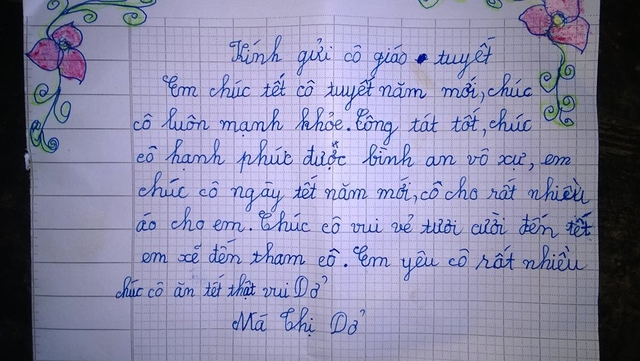 Kính gửi cô giáo tuyết
Em chúc tết cô tuyết năm mới, chúc
cô luôn mạnh khỏe. Công tát tốt, chúc
cô hạnh phúc được bình an vô xự, em
chúc cô ngày tết năm mới, cô cho rất nhiều
áo cho em. Chúc cô vui vẻ tươi cười đến tết
em xẽ đến tham cô. Em yêu cô rất nhiều
chúc cô ăn tết thật vui Dở
Má Thị Dở